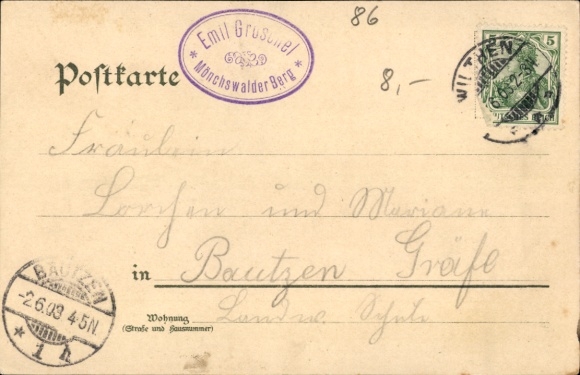 86
Emil Groschel
Mönchswalder Berg
5
WILTHEN
Postkarte
8,-
Fräulein
Lorchen und Mariane
Gräfe
in Bautzen
BAUTZEN
-2.6.03 4-5N
* 1 h
Wohnung
(Straße und Hausnummer)
Landw. Schule